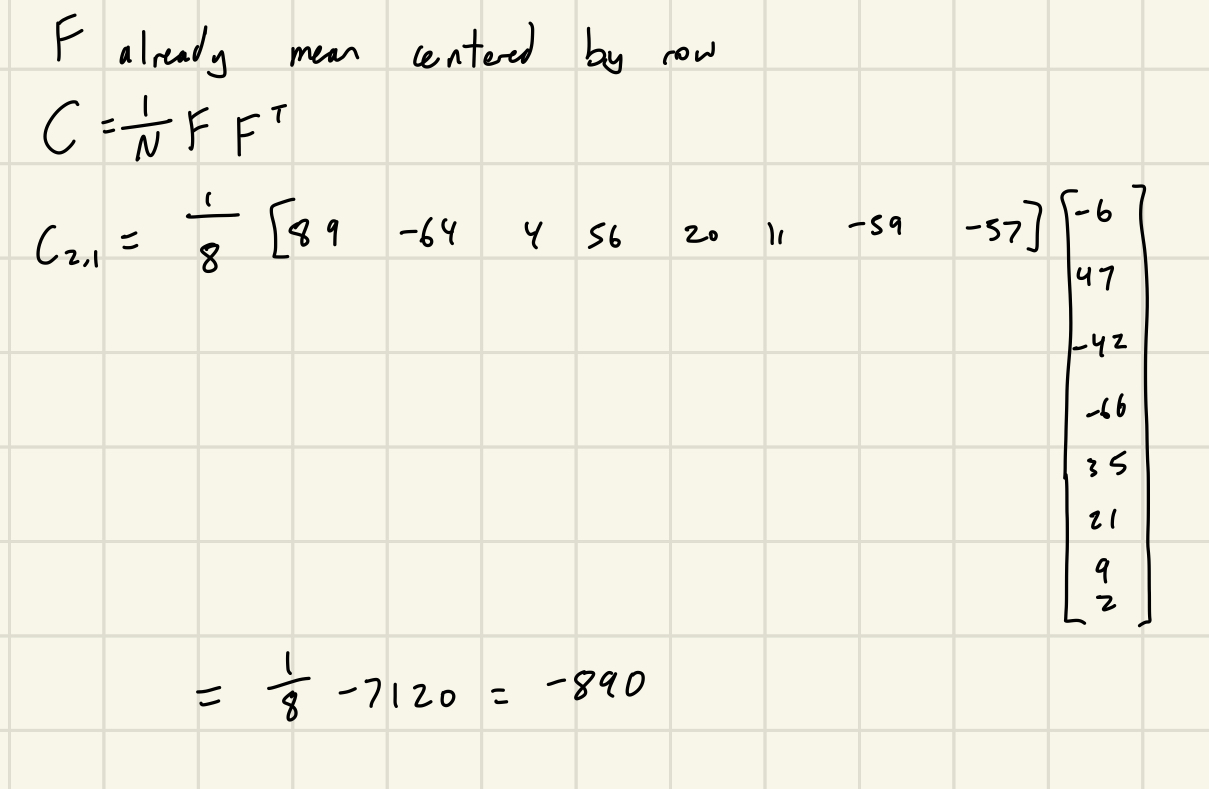 F already mean centered by row
C = 1/N F F^T
C_{2,1} = 1/8 [89 -64 4 56 20 11 -59 -57] [-6
47
-42
-66
35
21
9
2]
= 1/8 -7120 = -890